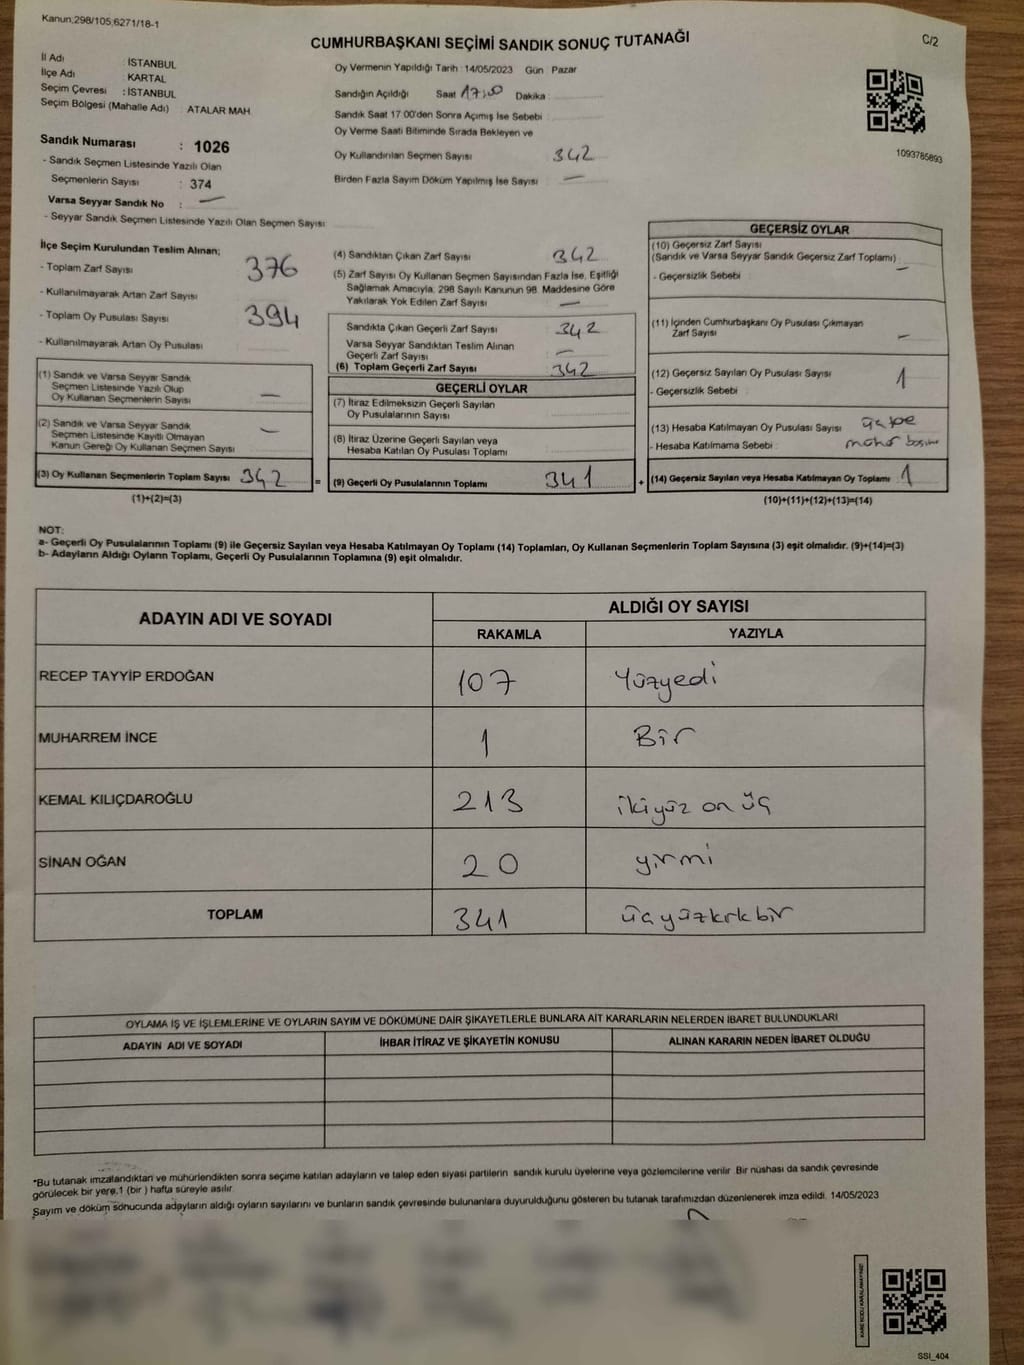 Kanun;298/105;6271/18-1
CUMHURBAŞKANI SEÇİMİ SANDIK SONUÇ TUTANAĞI
C/2
İl Adı İSTANBUL
İlçe Adı KARTAL
Seçim Çevresi : İSTANBUL
Seçim Bölgesi (Mahalle Adı) : ATALAR MAH.
Sandık Numarası : 1026
- Sandık Seçmen Listesinde Yazılı Olan
Seçmenlerin Sayısı : 374
Varsa Seyyar Sandık No : —
- Seyyar Sandık Seçmen Listesinde Yazılı Olan Seçmen Sayısı
Oy Vermenin Yapıldığı Tarih : 14/05/2023 Gün Pazar
Sandığın Açıldığı Saat 17:00 Dakika :
Sandık Saat 17:00'den Sonra Açımış İse Sebebi :
Oy Verme Saati Bitiminde Sırada Bekleyen ve
Oy Kullandırılan Seçmen Sayısı 342
Birden Fazla Sayım Döküm Yapılmış İse Sayısı : —
1093785893
İlçe Seçim Kurulundan Teslim Alınan;
- Toplam Zarf Sayısı 376
- Kullanılmayarak Artan Zarf Sayısı
- Toplam Oy Pusulası Sayısı 394
- Kullanılmayarak Artan Oy Pusulası
(1) Sandık ve Varsa Seyyar Sandık
Seçmen Listesinde Yazılı Olup
Oy Kullanan Seçmenlerin Sayısı —
(2) Sandık ve Varsa Seyyar Sandık
Seçmen Listesinde Kayıtlı Olmayan
Kanun Gereği Oy Kullanan Seçmen Sayısı —
(3) Oy Kullanan Seçmenlerin Toplam Sayısı 342
(1)+(2)=(3)
(4) Sandıktan Çıkan Zarf Sayısı 342
(5) Zarf Sayısı Oy Kullanan Seçmen Sayısından Fazla İse, Eşitliği
Sağlamak Amacıyla, 298 Sayılı Kanunun 98. Maddesine Göre
Yakılarak Yok Edilen Zarf Sayısı —
Sandıkta Çıkan Geçerli Zarf Sayısı 342
Varsa Seyyar Sandıktan Teslim Alınan
Geçerli Zarf Sayısı —
(6) Toplam Geçerli Zarf Sayısı 342
GEÇERLİ OYLAR
(7) İtiraz Edilmeksizin Geçerli Sayılan
Oy Pusulalarının Sayısı
(8) İtiraz Üzerine Geçerli Sayılan veya
Hesaba Katılan Oy Pusulası Toplamı
= (9) Geçerli Oy Pusulalarının Toplamı 341 +
GEÇERSİZ OYLAR
(10) Geçersiz Zarf Sayısı
(Sandık ve Varsa Seyyar Sandık Geçersiz Zarf Toplamı) : —
- Geçersizlik Sebebi
(11) İçinden Cumhurbaşkanı Oy Pusulası Çıkmayan
Zarf Sayısı —
(12) Geçersiz Sayılan Oy Pusulası Sayısı 1
- Geçersizlik Sebebi
(13) Hesaba Katılmayan Oy Pusulası Sayısı
- Hesaba Katılmama Sebebi mühür
(14) Geçersiz Sayılan veya Hesaba Katılmayan Oy Toplamı 1
(10)+(11)+(12)+(13)=(14)
NOT:
a- Geçerli Oy Pusulalarının Toplamı (9) ile Geçersiz Sayılan veya Hesaba Katılmayan Oy Toplamı (14) Toplamları, Oy Kullanan Seçmenlerin Toplam Sayısına (3) eşit olmalıdır. (9)+(14)=(3)
b- Adayların Aldığı Oyların Toplamı, Geçerli Oy Pusulalarının Toplamına (9) eşit olmalıdır.
ADAYIN ADI VE SOYADI
ALDIĞI OY SAYISI
RAKAMLA YAZIYLA
RECEP TAYYİP ERDOĞAN 107 Yüzyedi
MUHARREM İNCE 1 Bir
KEMAL KILIÇDAROĞLU 213 ikiyüz on üç
SİNAN OĞAN 20 yirmi
TOPLAM 341 üçyüzkırkbir
OYLAMA İŞ VE İŞLEMLERİNE VE OYLARIN SAYIM VE DÖKÜMÜNE DAİR ŞİKAYETLERLE BUNLARA AİT KARARLARIN NELERDEN İBARET BULUNDUKLARI
ADAYIN ADI VE SOYADI İHBAR İTİRAZ VE ŞİKAYETİN KONUSU ALINAN KARARIN NEDEN İBARET OLDUĞU
*Bu tutanak imzalandıktan ve mühürlendikten sonra seçime katılan adayların ve talep eden siyasi partilerin sandık kurulu üyelerine veya gözlemcilerine verilir. Bir nüshası da sandık çevresinde
görülecek bir yere,1 (bir ) hafta süreyle asılır.
Sayım ve döküm sonucunda adayların aldığı oyların sayılarını ve bunların sandık çevresinde bulunanlara duyurulduğunu gösteren bu tutanak tarafımızdan düzenlenerek imza edildi. 14/05/2023
KARE KODU KARALAMAYINIZ!
SSI_404